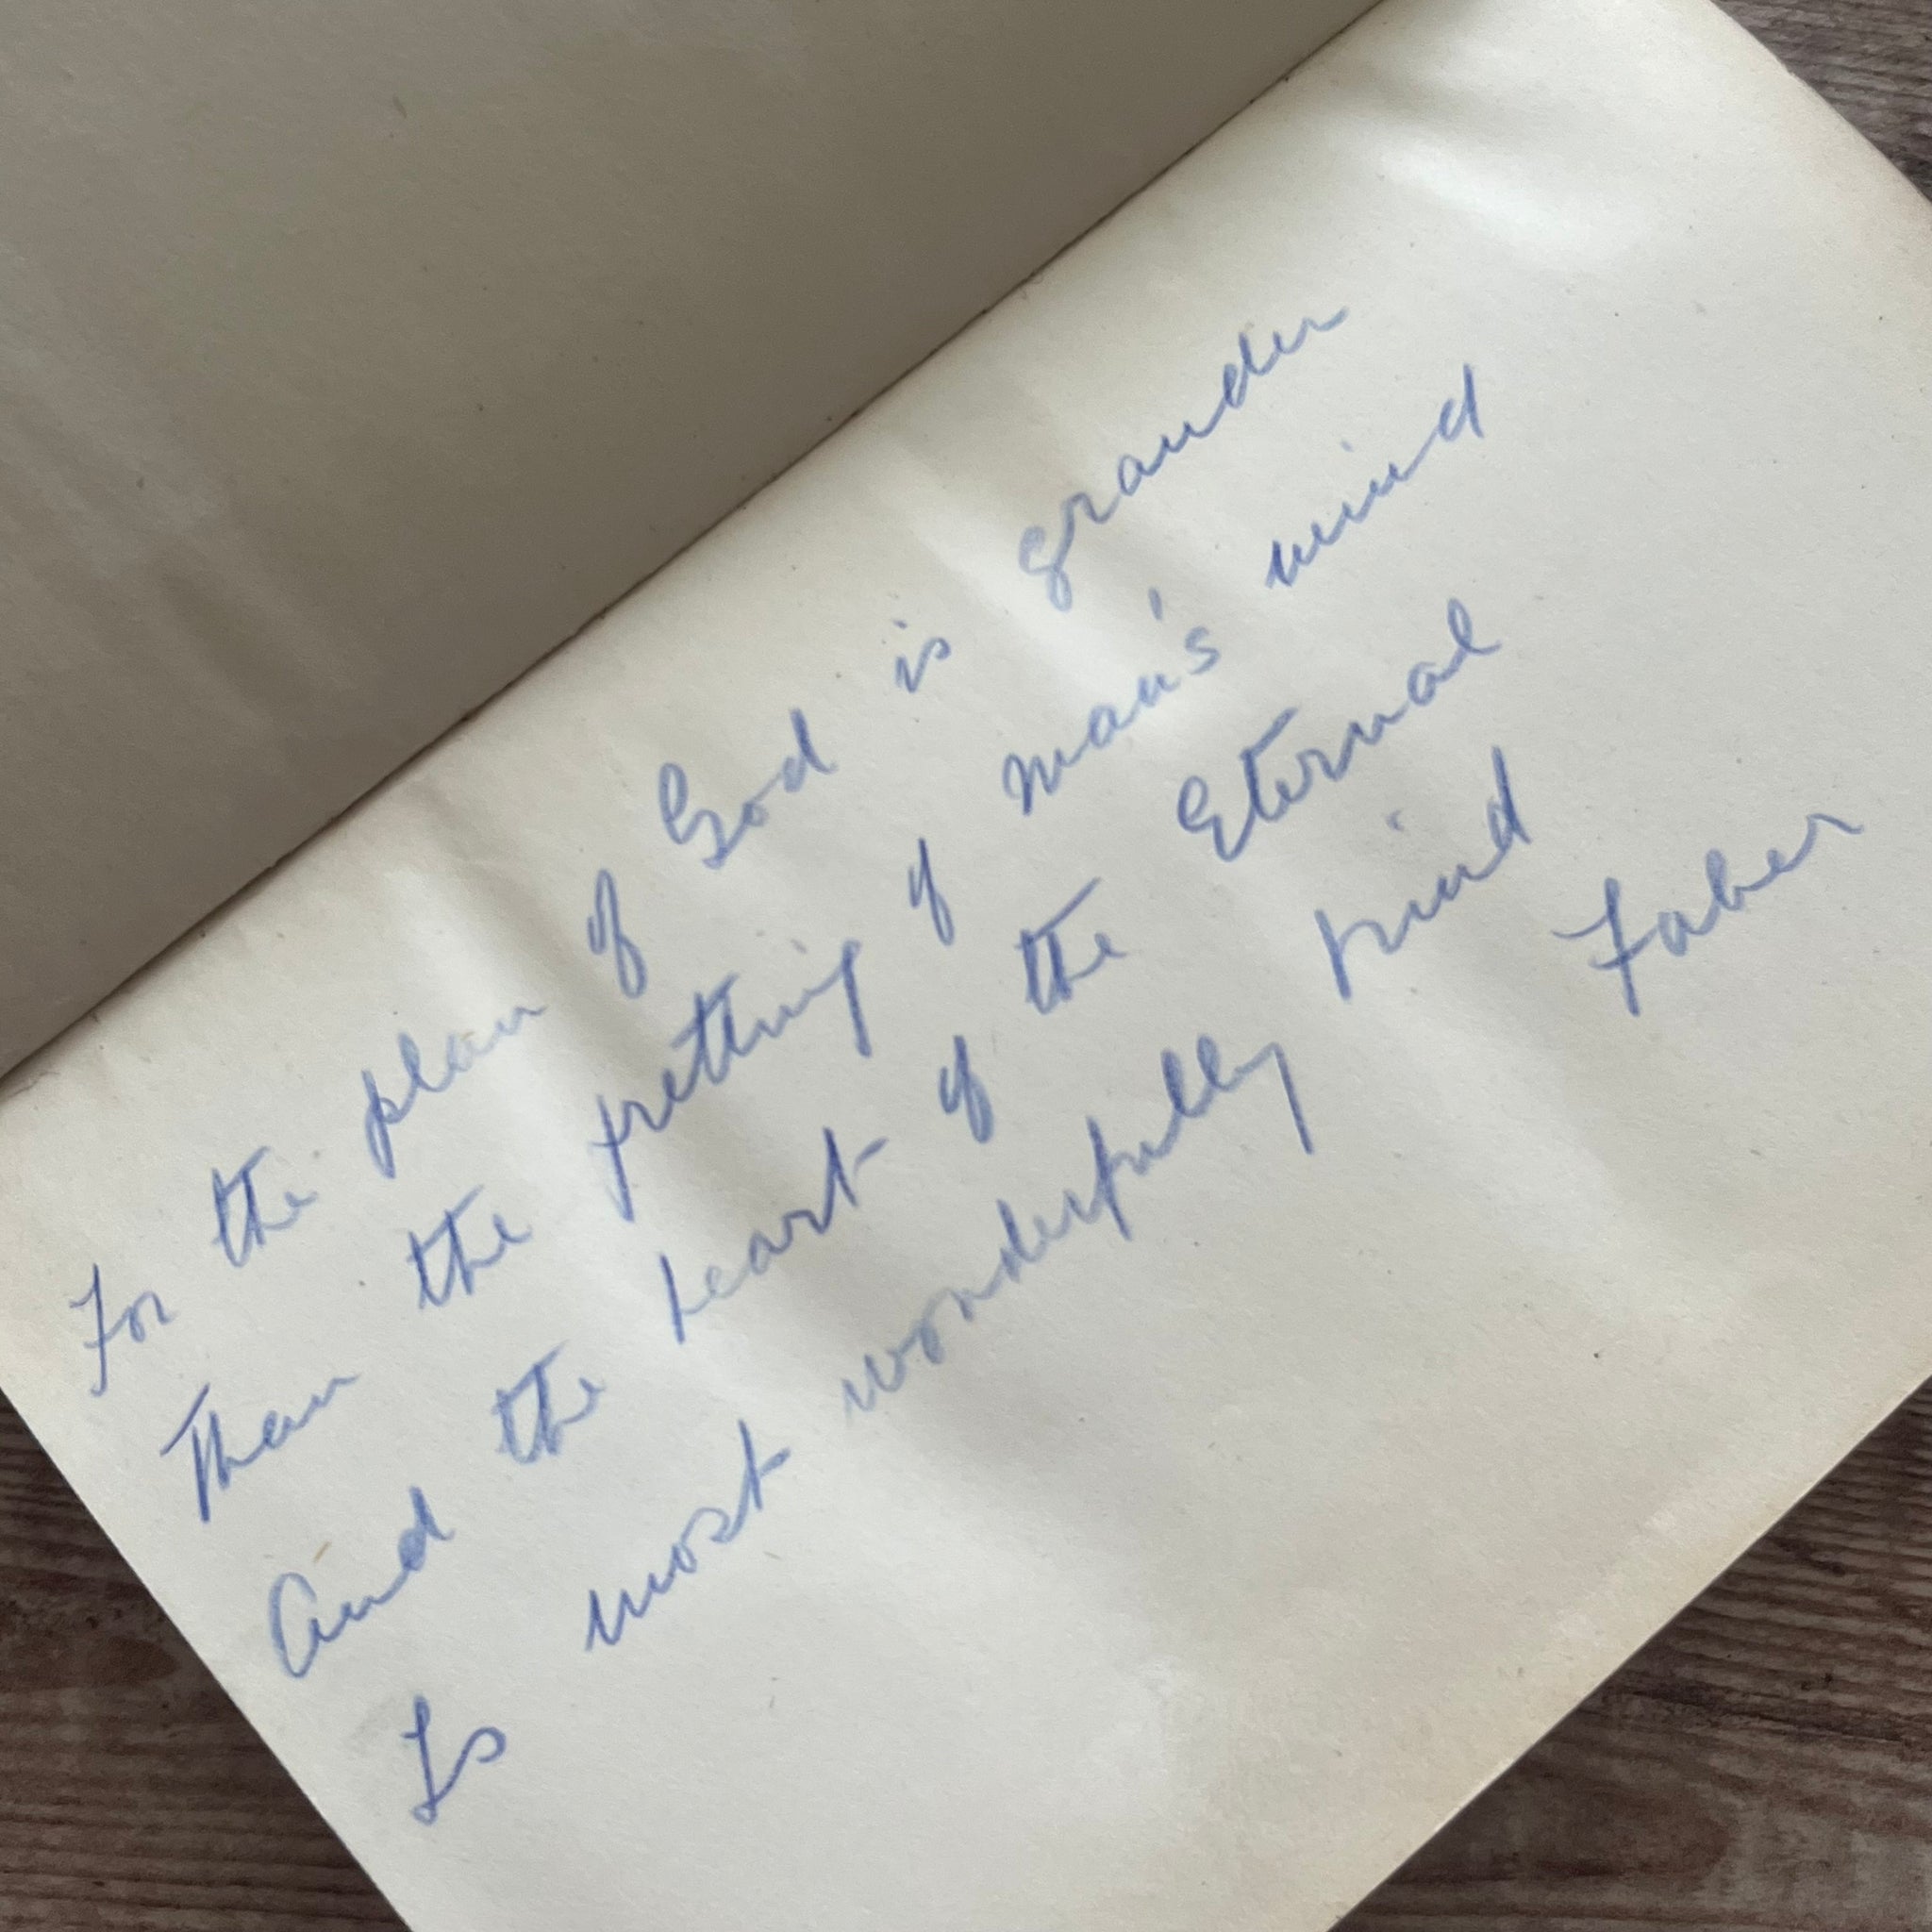 For the plan of God is grander
Than the fretting of man's mind
And the heart of the Eternal
Is most wonderfully kind
Faber